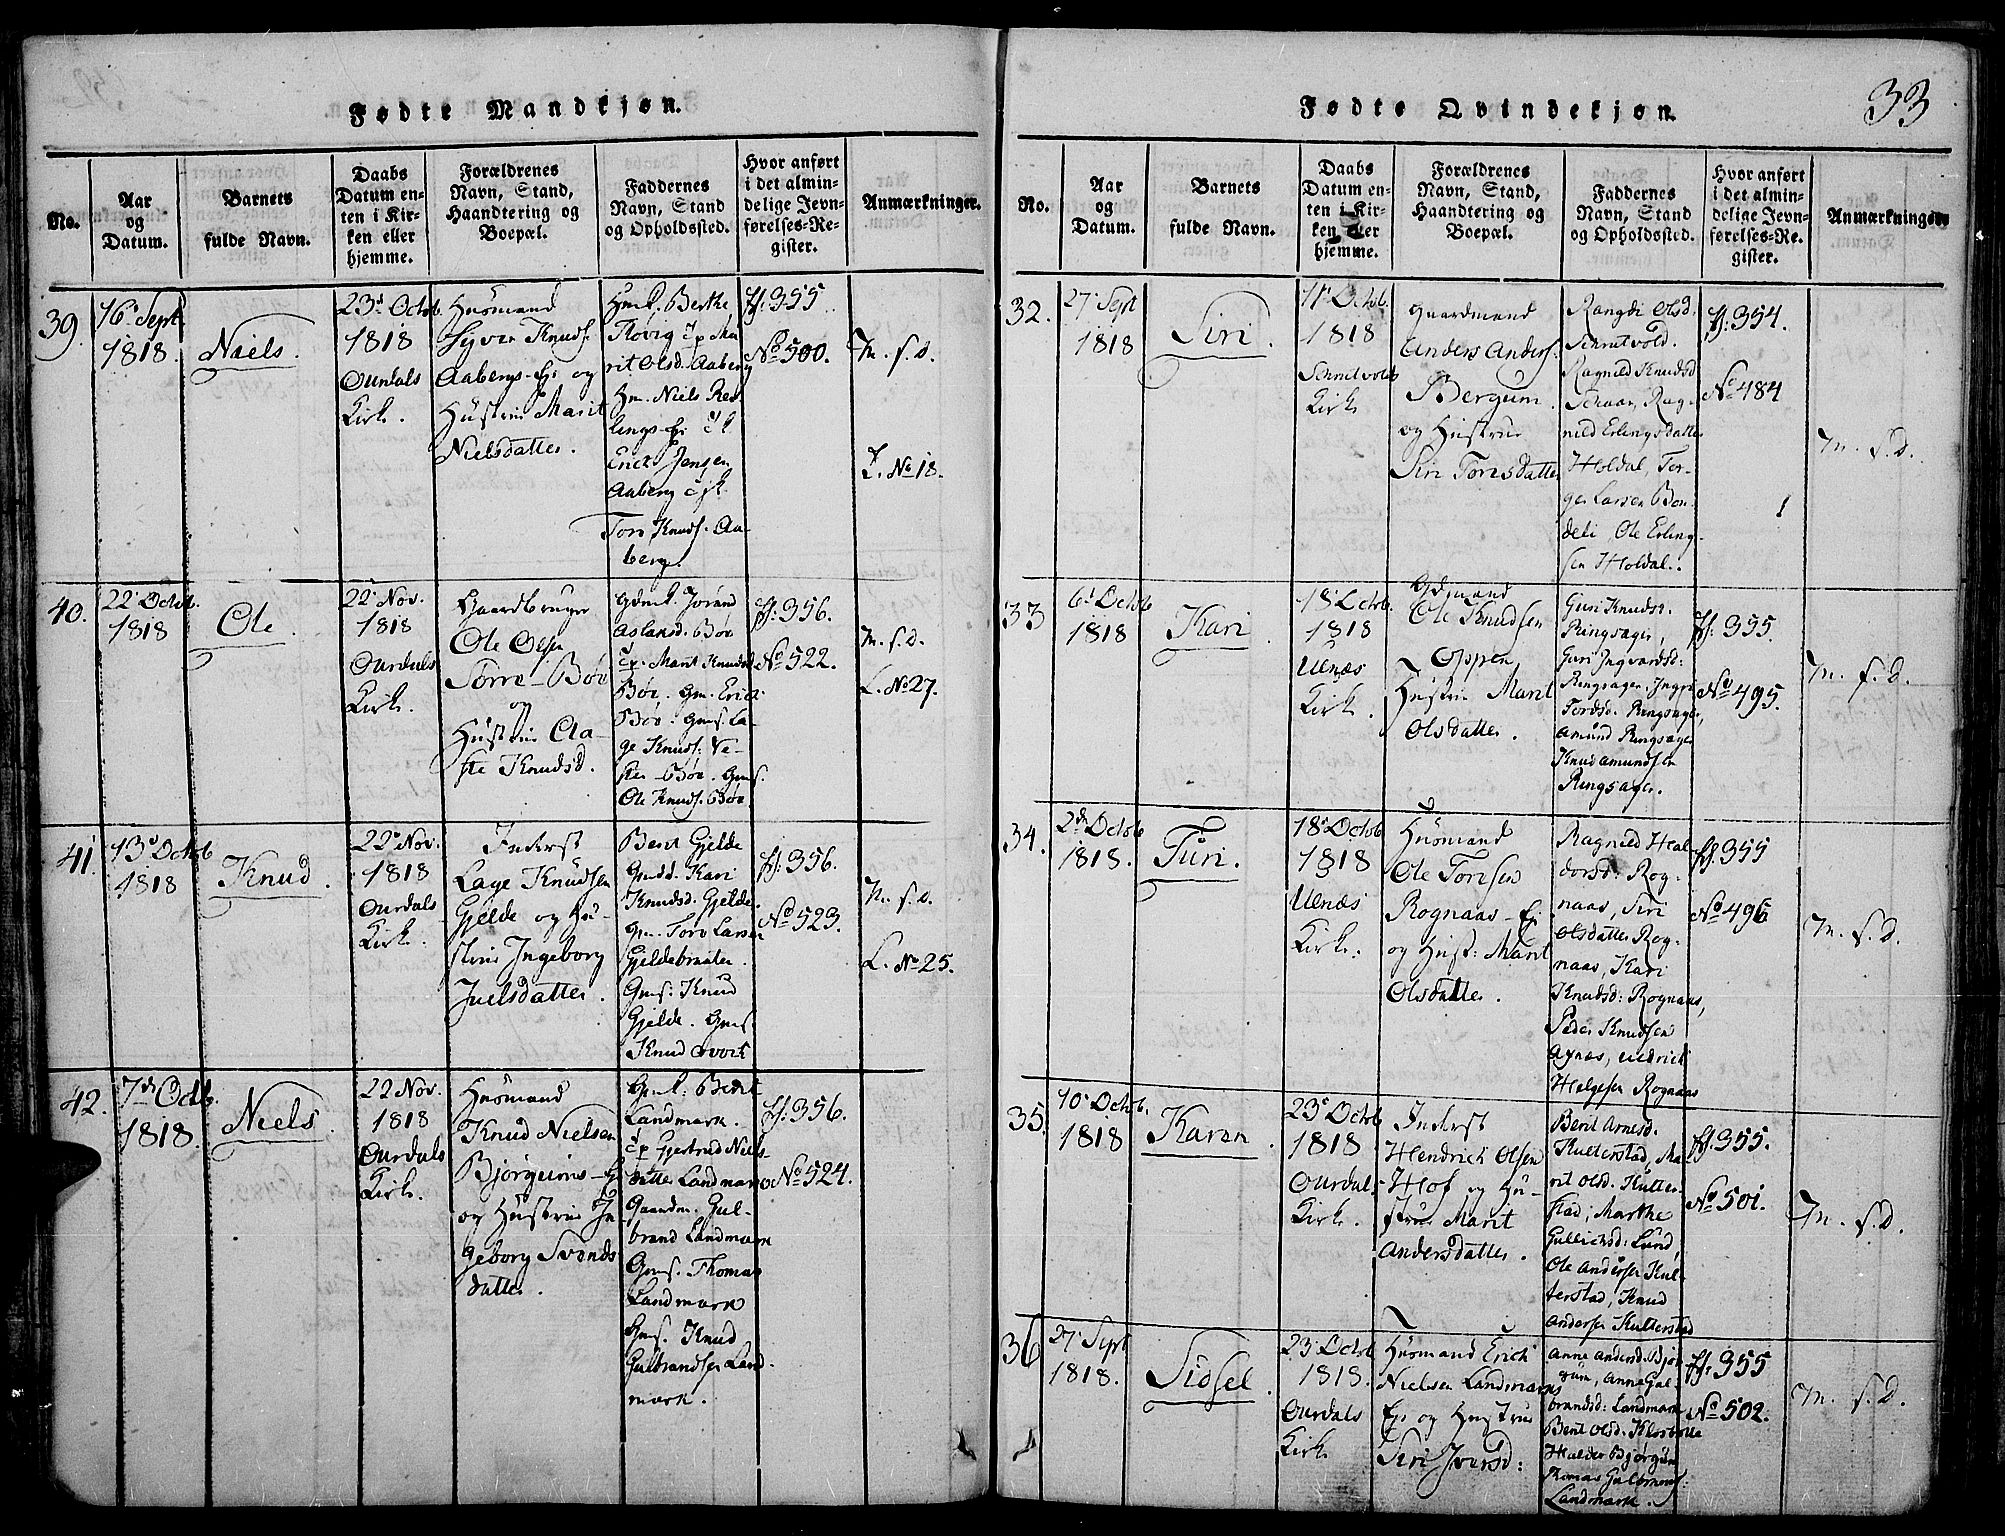 33
Fødte Mandkjøn.
No.
Aar
og
Datum.
Barnets
fulde Navn.
Daabs
Datum en-
ten i Kir-
ken eller
hjemme.
Forældrenes
Navn, Stand,
Haandtering og
Boepæl.
Faddernes
Navn, Stand
og Opholdssted.
Hvor anført
i det almin-
delige Jevn-
førelses-Re-
gister.
Anmærkninger.
39.
16d Sept.
1818.
Niels.
23d Octob.
1818
Ourdals
Kirk.
Huusmand
Syver Knuds.
Aabergs-Ej. og
Hustrue Marit
Nielsdatter.
Berthe
rit Olsd. Aaberg
Hm. Niels
Erich Jensen
Aaberg
Tore Knuds. Aa-
berg.
ff: 355
No 500.
M. f. d.
L. No 18.
40.
22d Octob.
1818
Ole.
22d Nov.
1818
Ourdals
Kirk.
Gaardbruger
Ole Olsen
Sørre-Bøe
og
Hustrue Aa-
ste Knudsd.
Gdmk. Jorand
Aslaksd. Bøe
Marit Knudsd.
Bøe. Gm. Erich
Bøe. Gms. La-
ge Knuds: Ve-
stre-Bøe. Gms.
Ole Knuds. Bøe
ff: 356.
No 522.
M. f. d.
L. No 27.
41.
13d Octob
1818
Knud.
22d Nov.
1818
Ourdals
Kirk.
Inderst
Lage Knudsen
Gjelde og Hu-
strue Ingeborg
Juelsdatter.
Berit Gjelde
Gmdd. Kari
Knudsd. Gjelde.
Gm. Tore Larsen
Gjeldebraaten.
Gms: Knud
Gjelde. Gms
Knud
ff: 356.
No 523.
M. f. d.
L. No 25.
42.
7de Octb.
1818.
Niels.
22 Nov.
1818
Ourdals
Kirk.
Huusmand
Knud Nielsen
Bjørgums-Ej
og Hustrue In-
geborg Svends
datter.
Gmk: Berit
Landmark.
Gjertrud Niels-
datter Landmark
Gaardm. Gul-
brand Landmark
Gms. Thomas
Landmark
Gms. Knud
Gulbrandsen Land-
mark.
ff: 356.
No 524.
Fødte Qvindekjøn.
No.
Aar
og
Datum.
Barnets
fulde Navn.
Daabs
Datum en-
ten i Kir-
ken eller
hjemme.
Forældrenes
Navn, Stand,
Haandtering og
Boepæl.
Faddernes
Navn, Stand
og Opholdssted.
Hvor anført
i det almin-
delige Jevn-
førelses-Re-
gister.
Anmærkninger.
32.
27d Sept
1818
Siri.
11d Octob.
1818
Schrutvolds
Kirk
Gaardmand
Anders Anders.
Bergum.
og Hustrue
Siri Toresdatter
Rangdi Olsd.
Schrutvold.
Ragnild Knudsd
Rag-
nild Erlingsdatter
Holdal, Tor-
ger Larsen Bon-
deli, Ole Erling-
sen Holdal.
ff: 354.
No 484
M. f. d.
33
6d Octob
1818
Kari
18d Octob.
1818
Ulnæs
Kirk.
Gdmand
Ole Knudsen
Oppen
Hustrue Marit
Olsdatter.
Guri Knudsd.
Ringsager,
Guri Ingvardsd:
Ringsager, Ingri
Tordsd. Ringsager,
Amund Ringsager
Knud Amundsen
Ringsager.
ff: 355.
No 495.
M. f. d.
34.
2de Octob
1818.
Turi.
18d Octob
1818
Ulnæs
Kirk.
Huusmand
Ole Toresen
Rognaas-Ej
og Hust: Marit
Olsdatter.
Ragnild Hal-
dorsd: Rog-
naas, Siri
Olsdatter Rog-
naas, Kari
Knudsd: Rognaas,
Peder Knudsen
Axnæs, Endrich
Helgesen Rognaas
ff: 355
No 496
M. f. d.
35.
10d Octob.
1818
Karen.
23d Octob
1818
Ourdals
Kirk.
Inderst
Hendrich Olsen
Hof og Hu-
strue Marit
Andersdatter.
Berit Arnesd.
Kulterstad, Ma-
rit Olsd. Kulter-
stad, Marthe
Gullichsd: Lund,
Ole Andersen Kul-
terstad, Knud
Andersen Kulterstad
ff: 355.
No 501.
M. f. d.
36
27d Sept
1818.
Sidsel.
23d Octob
1818.
Ourdals
Kirk
Huusmand Erich
Nielsen Landmarks
Ej. og Hustrue
Siri Iversd:
Anne Andersd. Bjør-
gum, Anne Gul-
brandsd: Landmark
Berit Olsd. Klosbolle
Halder Bjørgum
Thomas Gulbrands:
Landmark.
ff: 355
No 502.
M. f. d.